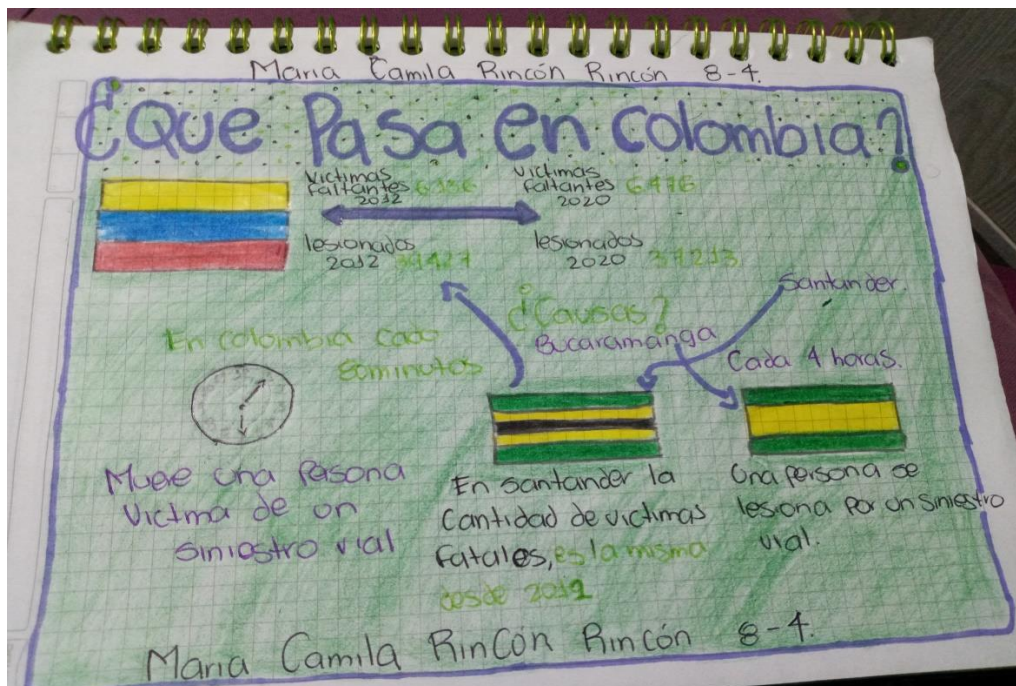 Maria Camila Rincón Rincón 8-4.
¿Que Pasa en Colombia?
victimas
faltantes
2012
victimas
faltantes 6.476
2020
lesionados
2012
lesionados
2020 37213
Santander.
¿Causas?
Bucaramanga
Cada 4 horas.
En colombia cada
80minutos
Muere una Pesona
Victma de un
Siniestro vial
En santander la
Cantidad de victimas
fatales, es la misma
desde 2012
Una persona se
lesiona por un siniestro
vial.
Maria Camila Rincón Rincón 8-4.